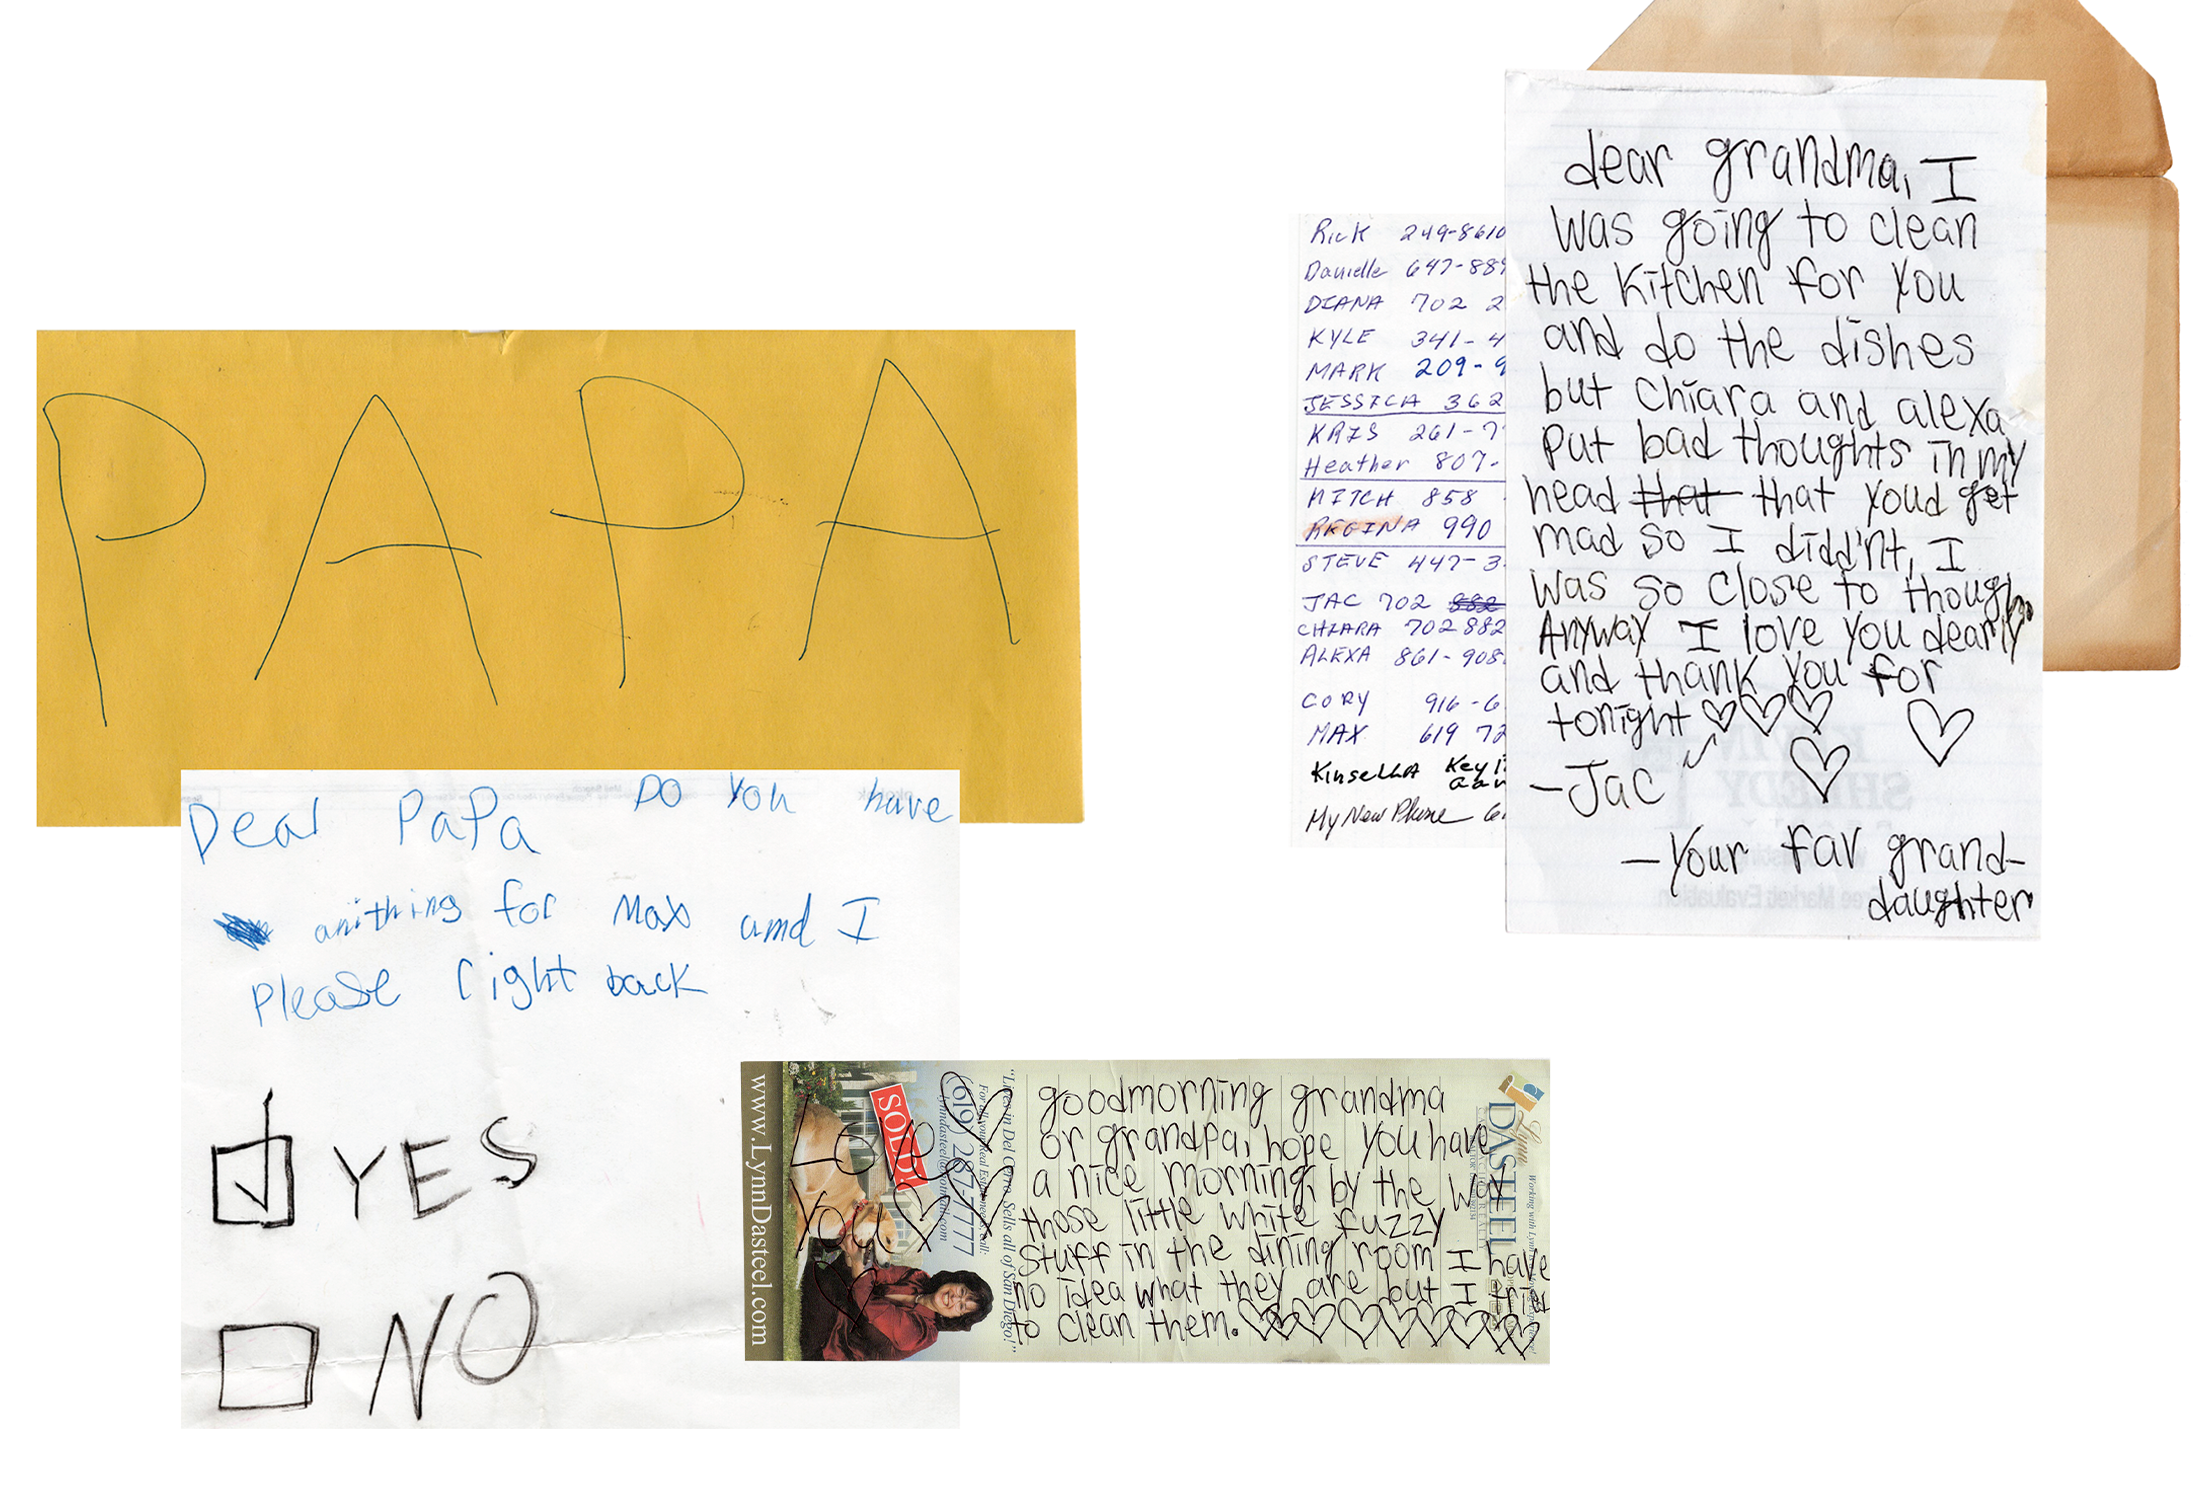 PAPA
Dear PaPa Do you have
anithing for Max and I
Please right back
YES
NO
Rick 249-8610
Danielle 647-889
DIANA 702 2
KYLE 341-4
MARK 209-9
JESSICA 362
KRIS 261-7
Heather 807-
MITCH 858
REGINA 990
STEVE 447-3
JAC 702 882
CHIARA 702 882
ALEXA 861-908
CORY 916-6
MAX 619 72
KinseLLA Key
My New Phone 6
dear grandma, I
was going to clean
the kitchen for you
and do the dishes
but chiara and alexa
put bad thoughts in my
head that that youd get
mad so I didd'nt, I
was so close to though
Anyway I love you dearly
and thank you for
tonight
-Jac
-Your fav grand-
daughter
goodmorning grandma
or grandpa, hope you have
a nice morning, by the way
those little white fuzzy
stuff in the dining room I have
no idea what they are but I tried
to clean them.
Love
You
www.LynnDasteel.com
SOLD!
(619) 287-7777
lynndasteel@hotmail.com
For all your Real Estate needs, call:
"Lives in Del Cerro, Sells all of San Diego!"
Lynn
DASTEEL
KEVIN
SHEEDY
Free Market Evaluation